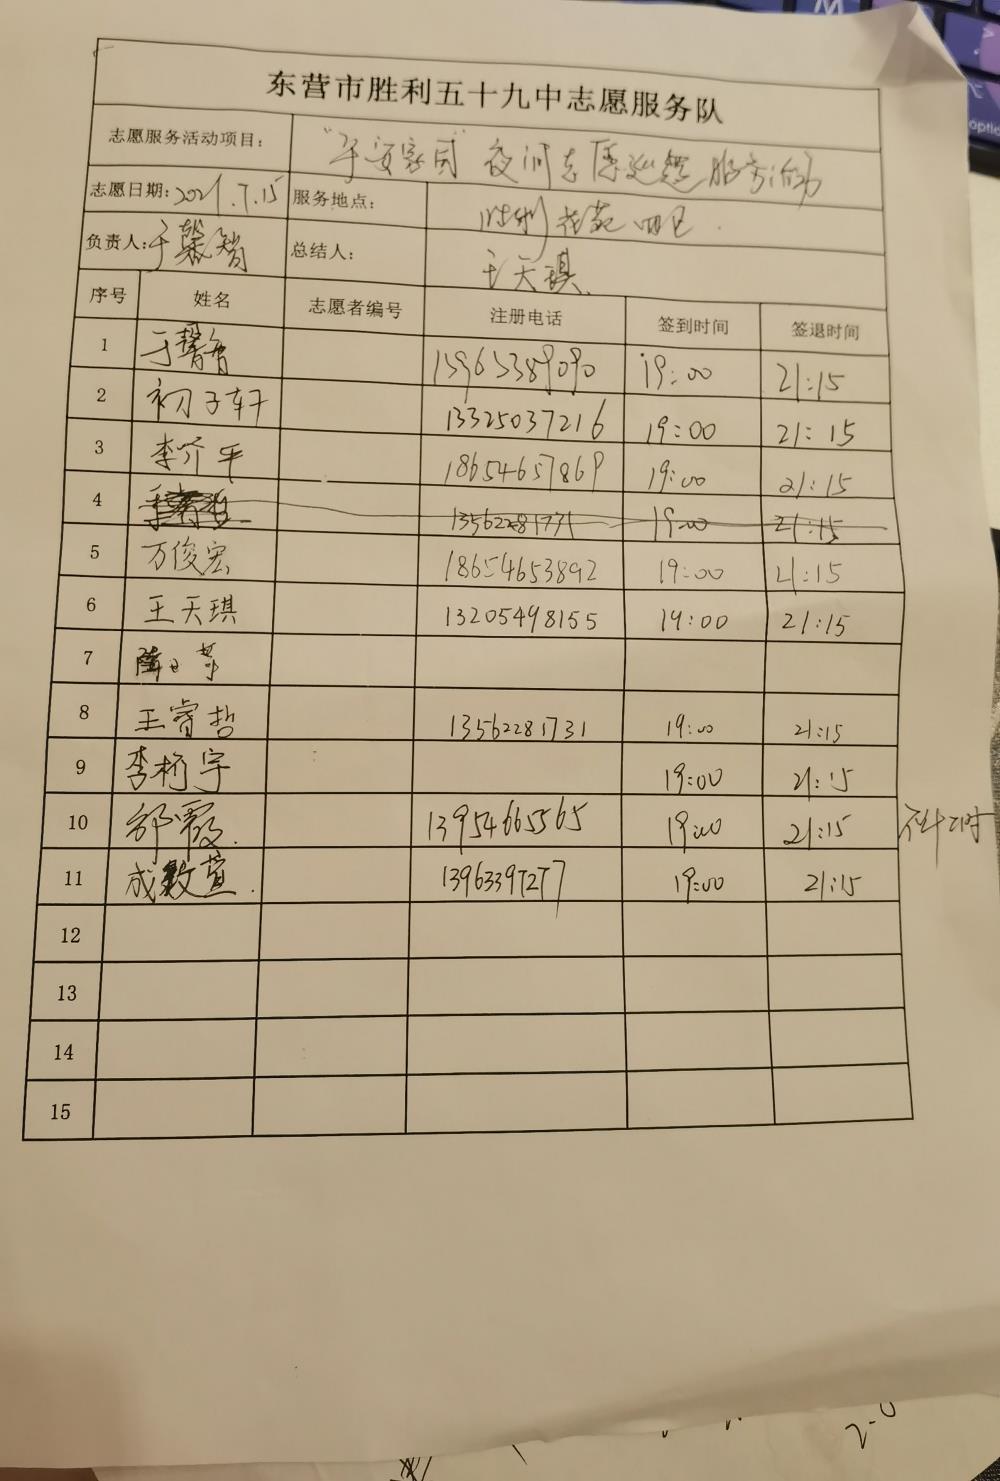 东营市胜利五十九中志愿服务队
志愿服务活动项目： "平安家园"夜间志愿巡逻服务活动
志愿日期：2021.7.15 服务地点： 胜利花苑四区.
负责人：于馨智 总结人： 王天琪
序号 姓名 志愿者编号 注册电话 签到时间 签退时间
1 于馨智 15965389090 19:00 21:15
2 初子轩 13325037216 19:00 21:15
3 李亓平 18654657869 19:00 21:15
4 13562281731 19:00 21:15
5 万俊宏 18654653892 19:00 21:15
6 王天琪 13205498155 19:00 21:15
7
8 王睿哲 13562281731 19:00 21:15
9 李桥宇 19:00 21:15
10 邹霞. 13954665565 19:00 21:15 不计工时
11 成数萱. 13963397277 19:00 21:15
12
13
14
15
2-0
option
M